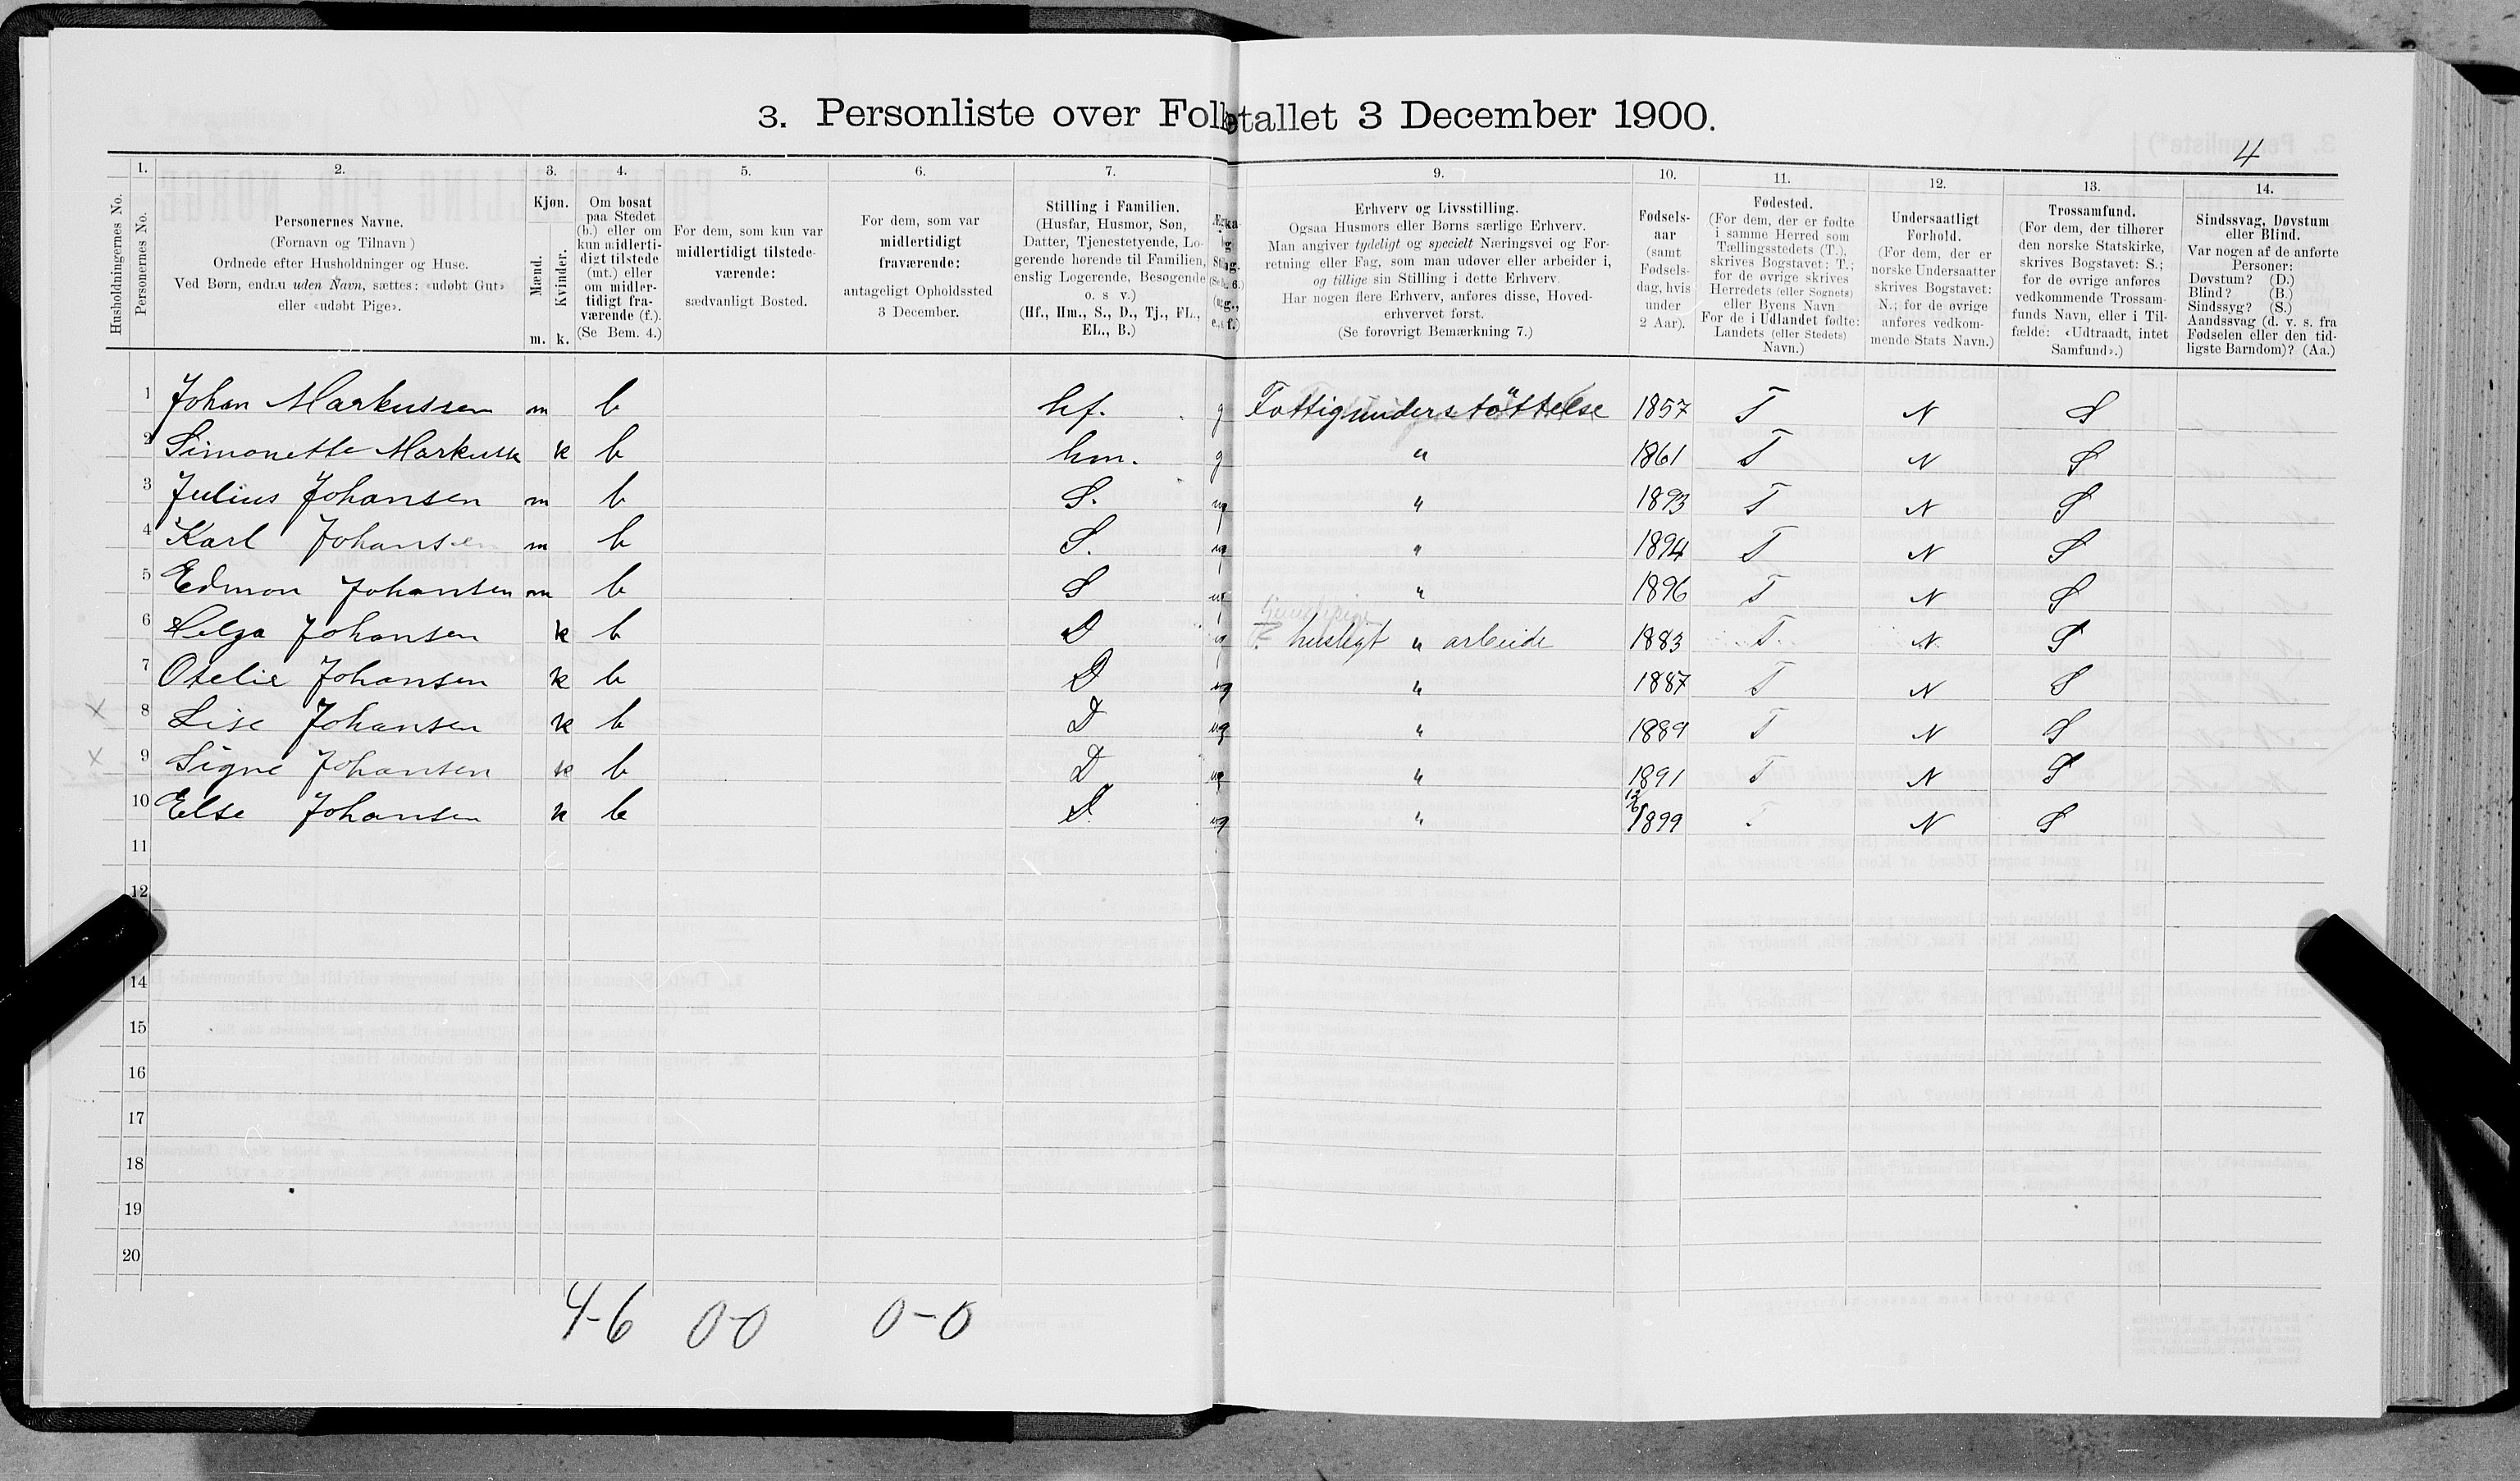 3. Personliste over Folketallet 3 December 1900.
4
1. 2. 3. 4. 5. 6. 7. 9. 10. 11. 12. 13. 14.
Husholdningernes No.
Personernes No.
Personernes Navne.
(Fornavn og Tilnavn)
Ordnede efter Husholdninger og Huse.
Ved Børn, endnu uden Navn, sættes: «udøbt Gut»
eller «udøbt Pige».
Kjøn.
Mænd.
Kvinder.
m. k.
Om bosat
paa Stedet
(b.) eller om
kun midlerti-
digt tilstede
(mt.) eller
om midler-
tidigt fra-
værende (f.).
(Se Bem. 4.)
For dem, som kun var
midlertidigt tilstede-
værende:
sædvanligt Bosted.
For dem, som var
midlertidigt
fraværende:
antageligt Opholdssted
3 December.
Stilling i Familien.
(Husfar, Husmor, Søn,
Datter, Tjenestetyende, Lo-
gerende hørende til Familien,
enslig Logerende, Besøgende
o. s v.)
(Hf., Hm., S., D., Tj., FL.,
EL., B.)
Erhverv og Livsstilling.
Ogsaa Husmors eller Børns særlige Erhverv.
Man angiver tydeligt og specielt Næringsvei og For-
retning eller Fag, som man udøver eller arbeider i,
og tillige sin Stilling i dette Erhverv.
Har nogen flere Erhverv, anføres disse, Hoved-
erhvervet først.
(Se forøvrigt Bemærkning 7.)
Fødsels-
aar
(samt
Fødsels-
dag, hvis
under
2 Aar).
Fødested.
(For dem, der er fødte
i samme Herred som
Tællingsstedets (T.),
skrives Bogstavet: T.;
for de øvrige skrives
Herredets (eller Sognets)
eller Byens Navn
For de i Udlandet fødte:
Landets (eller Stedets)
Navn.)
Undersaatligt
Forhold.
(For dem, der er
norske Undersaatter
skrives Bogstavet:
N.; for de øvrige
anføres vedkom-
mende Stats Navn.)
Trossamfund.
(For dem, der tilhører
den norske Statskirke,
skrives Bogstavet: S.;
for de øvrige anføres
vedkommende Trossam-
funds Navn, eller i Til-
fælde: «Udtraadt, intet
Samfund».)
Sindssvag, Døvstum
eller Blind.
Var nogen af de anførte
Personer:
Døvstum? (D.)
Blind? (B.)
Sindssyg? (S.)
Aandssvag (d. v. s. fra
Fødselen eller den tid-
ligste Barndom)? (Aa.)
1 Johan Markussen m b hf. g Fattigunderstöttelse 1857 T N S
2 Simonette Markuss k b hm. g " 1861 T N S
3 Julius Johansen m b S. ug " 1893 T N S
4 Karl Johansen m b S. ug " 1894 T N S
5 Edmon Johansen m b S ug " 1896 T N S
6 Helga Johansen k b D ug husligt " arbeide 1883 T N S
7 Otelie Johansen k b D ug " 1887 T N S
x 8 Lise Johansen k b D ug " 1889 T N S
x 9 Signe Johansen k b D ug " 1891 T N S
10 Else Johansen k b D. ug " 12/6 1899 T N S
11
12
14
15
16
17
18
19
20
4-6 0-0 0-0